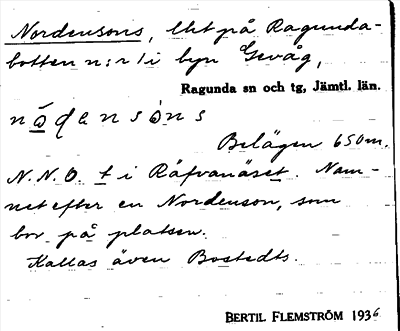 Nordensons, lht på Ragunda-
botten n:r 1 i byn Gevåg,
Ragunda sn och tg, Jämtl. län.
Belägen 650 m.
N.N.O. t i Räfvanäset. Nam-
net efter en Nordenson, som
bor på platsen.
Kallas även Bostedts.
BERTIL FLEMSTRÖM 1936